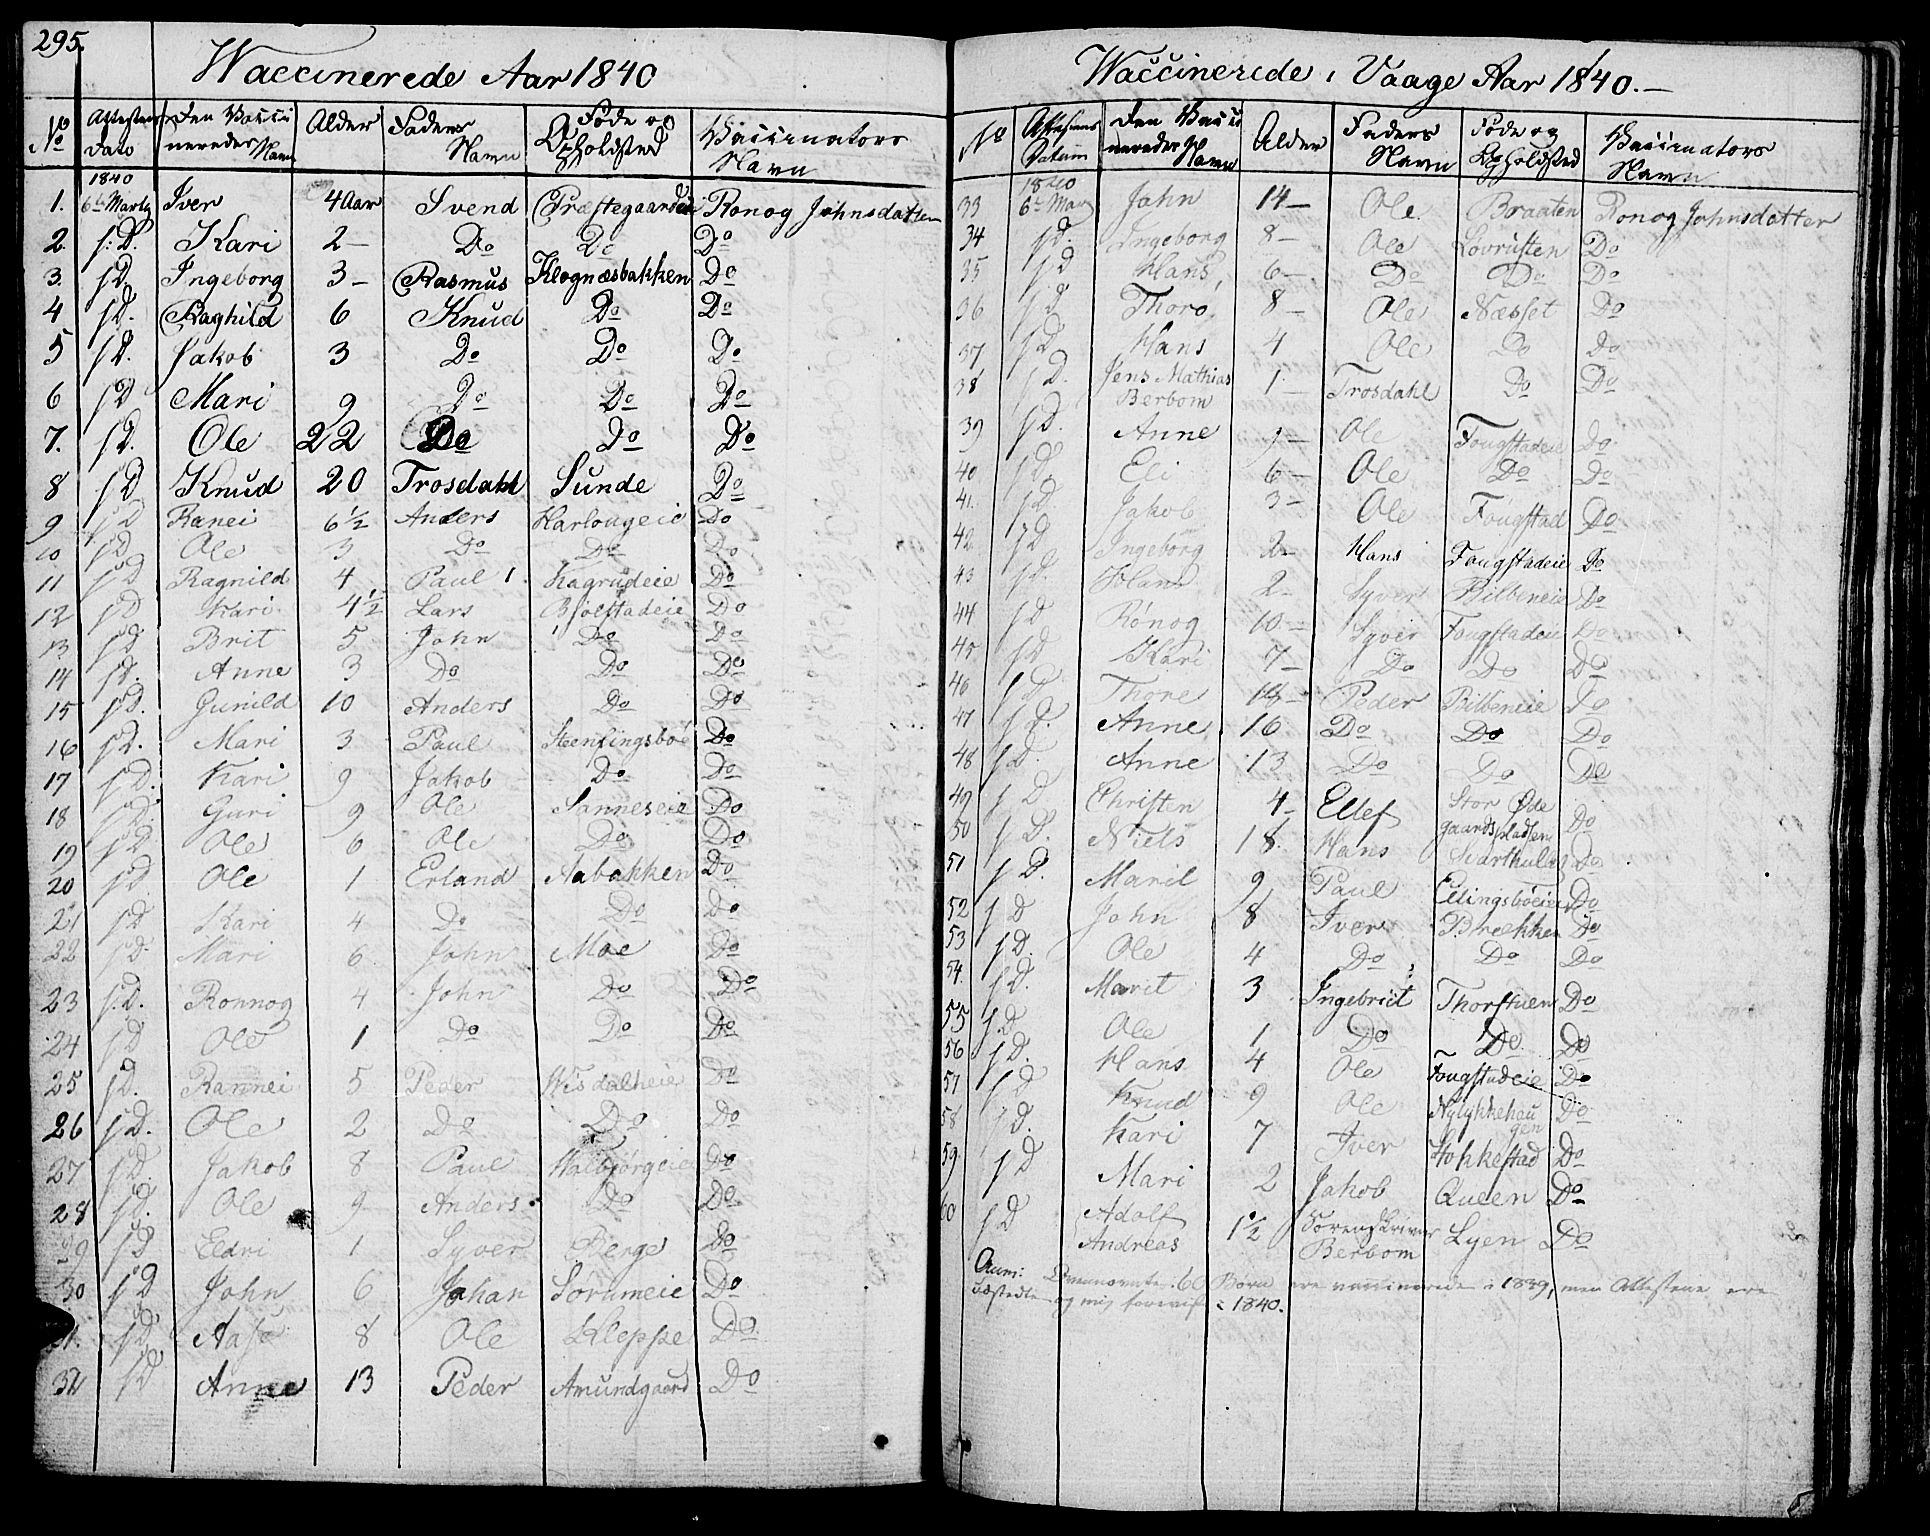 295.
Waccinerede Aar 1840
No Attestens Dato Den Vacci neredes Navn Alder Faders Navn Føde og Opholdsted Vaccinators Navn
1840
1. 6te Marty Iver 4 Aar Svend Præstegaarden Ronog Johnsdatter
2 s: D. Kari 2 — Do Do Do
3. s D. Ingeborg 3 — Rasmus Klognæsbakken Do
4 s D. Raghild 6 Knud Do Do
5 s D. Jakob 3 Do Do Do
6 s D Mari 9 Do Do Do
7. s D. Ole 22 Do Do Do
8 s D Knud 20 Trosdahl Sunde Do
9 s D Ranei 6 1/2 Anders Harlougeie Do
10 s D Ole 3 Do Do Do
11 s D Ragnild 4 Paul Hagrudeie Do
12 s D Kari 4 1/2 Lars Bjølstadeie Do
13 s D Brit 5 John Do Do
14 s D. Anne 3 Do Do Do
15 s D. Gunild 10 Anders Do Do
16 s D. Mari 3 Paul Steenlingsboe Do
17 s D. Kari 9 Jakob Do Do
18 s D. Guri 9 Ole Sanneseie Do
19 s D Ole 6 Ole Do Do
20 s D Ole 1 Erland Aabakken Do
21 s D Kari 4 Do Do Do
22 s D. Mari 6 John Moe Do
23 s. D. Ronnog 4 John Do Do
24 s D Ole 1 Do Do Do
25 s D. Rannei 5 Peder Wisdalheie Do
26 s D. Ole 2 Do Do Do
27 s D. Jakob 8 Paul Halbjørgeie Do
28 s D. Ole 9 Anders Do Do
29 s D Eldri 1 Syver Berge Do
30 s D John 6 Johan Sørumeie Do
31. s D. Aase 8 Ole Kleppe Do
32 s D Anne 13 Peder Amundgaard Do
Waccinerede i Vaage Aar 1840. —
No Attestens Datum Den Vacci neredes Navn Alder Faders Navn Føde og Opholdsted Vaccinators Navn
1840
33 6te Marty Jahn 14 — Ole Braaten Ronog Johnsdatter
34 s D. Ingeborg 8 — Ole Lovrusten Do
35 s D Hans 6 — Do Do Do
36 s D Thoro 8 — Ole Næsset Do
37 s D Hans 4 Ole Do Do
38 s D. Jens Mathias Berbom 1 — Trosdahl Do Do
39 s D. Anne 9 — Ole Fougstadeie Do
40 s D. Eli 6 — Ole Do Do
41. s D Jakob 3 — Ole Fougstad Do
42 s D Ingeborg 2 — Hans Fougstadeie Do
43 s D. Hans 2 — Syver Bilbeneie Do
44 s D Rónog 10 — Syver Fougstadeie Do
45 s D Kari 7 — Do Do Do
46 s D Thore 18 — Peder Bilbeneie Do
47 s D. Anne 16 Do Do Do
48 s D. Anne 13 Do Do Do
49 s D Christen 4 — Ellef Stor Øde gaardspladsen Do
50 s D. Niels 18. Hans Svarthulag Do
51 s D. Maril 9 Paul Ellingsbøeie Do
52 s D John 8 Iver Brækken Do
53 s D. Ole 4 Do Do Do
54. s D. Marit 3 Ingebriit Thorstuen Do
55 s D Ole 1 Do Do Do
56 s D. Hans 4 Ole Fougstadeie Do
57 s D Knud 9 Ole Nylykkehau gen Do
58 s D. Kari 7 Iver Stokkestad Do
59 s D Mari 2 Jakob Queen Do
60 s D Adolf Andreas 1 1/2 Sorenskriver Berbom Lyen Do
Anm: Ovennævnte 60 Børn ere vaccinerede i 1839, men Attestene ere
udstedte og mig foreviist i 1840.